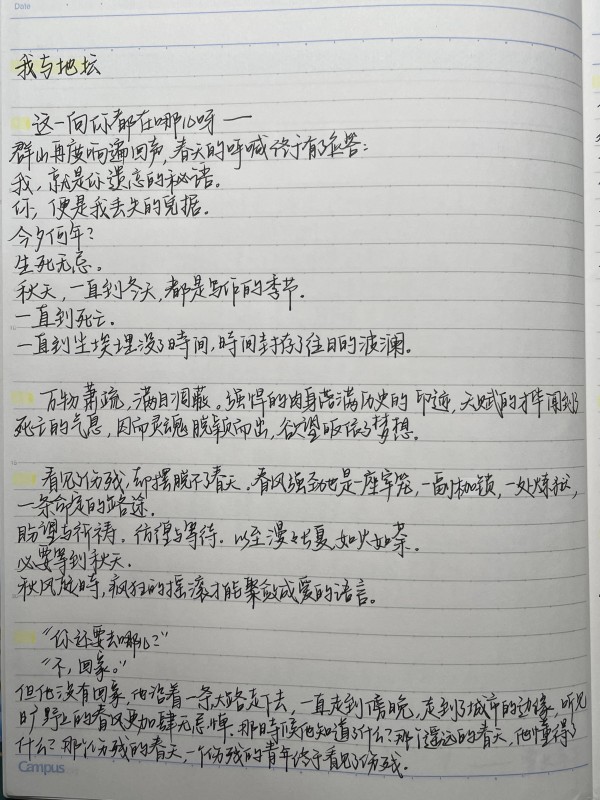 Date
我与地坛
这一向你都在哪儿呀——
群山再度响遍回声，春天的呼喊终于有了应答：
我，就是你遗忘的秘语。
你，便是我丢失的凭据。
今夕何年？
生死无忌。
秋天，一直到冬天，都是写作的季节。
一直到死亡。
一直到尘埃埋没了时间，时间封存了往日的波澜。
万物萧疏，满目凋蔽。强悍的肉身落满历史的印迹，天赋的才华闻到了
死亡的气息，因而灵魂脱颖而出，欲望皈依了梦想。
看见了伤残，却摆脱不了春天。春风强劲也是一座牢笼，一副枷锁，一处炼狱，
一条命定的路途。
盼望与祈祷。彷徨与等待。以至漫漫长夏，如火如荼。
必要等到秋天。
秋风起时，疯狂的摇滚才能聚敛成爱的语言。
“你还要去哪儿？”
“不，回家。”
但他没有回家，他沿着一条大路走下去，一直走到傍晚，走到了城市的边缘，听见
旷野上的春风更加肆无忌惮。那时候他知道了什么？那个遥远的春天，他懂得了
什么？那个伤残的春天，一个伤残的青年终于看见了伤残。
Campus